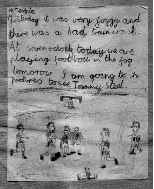 Yesterday it was very foggy and
there was a bad train crash
At somersdale today we are
playing football in the fog
tomorrow I am going to a
Tommy Steel